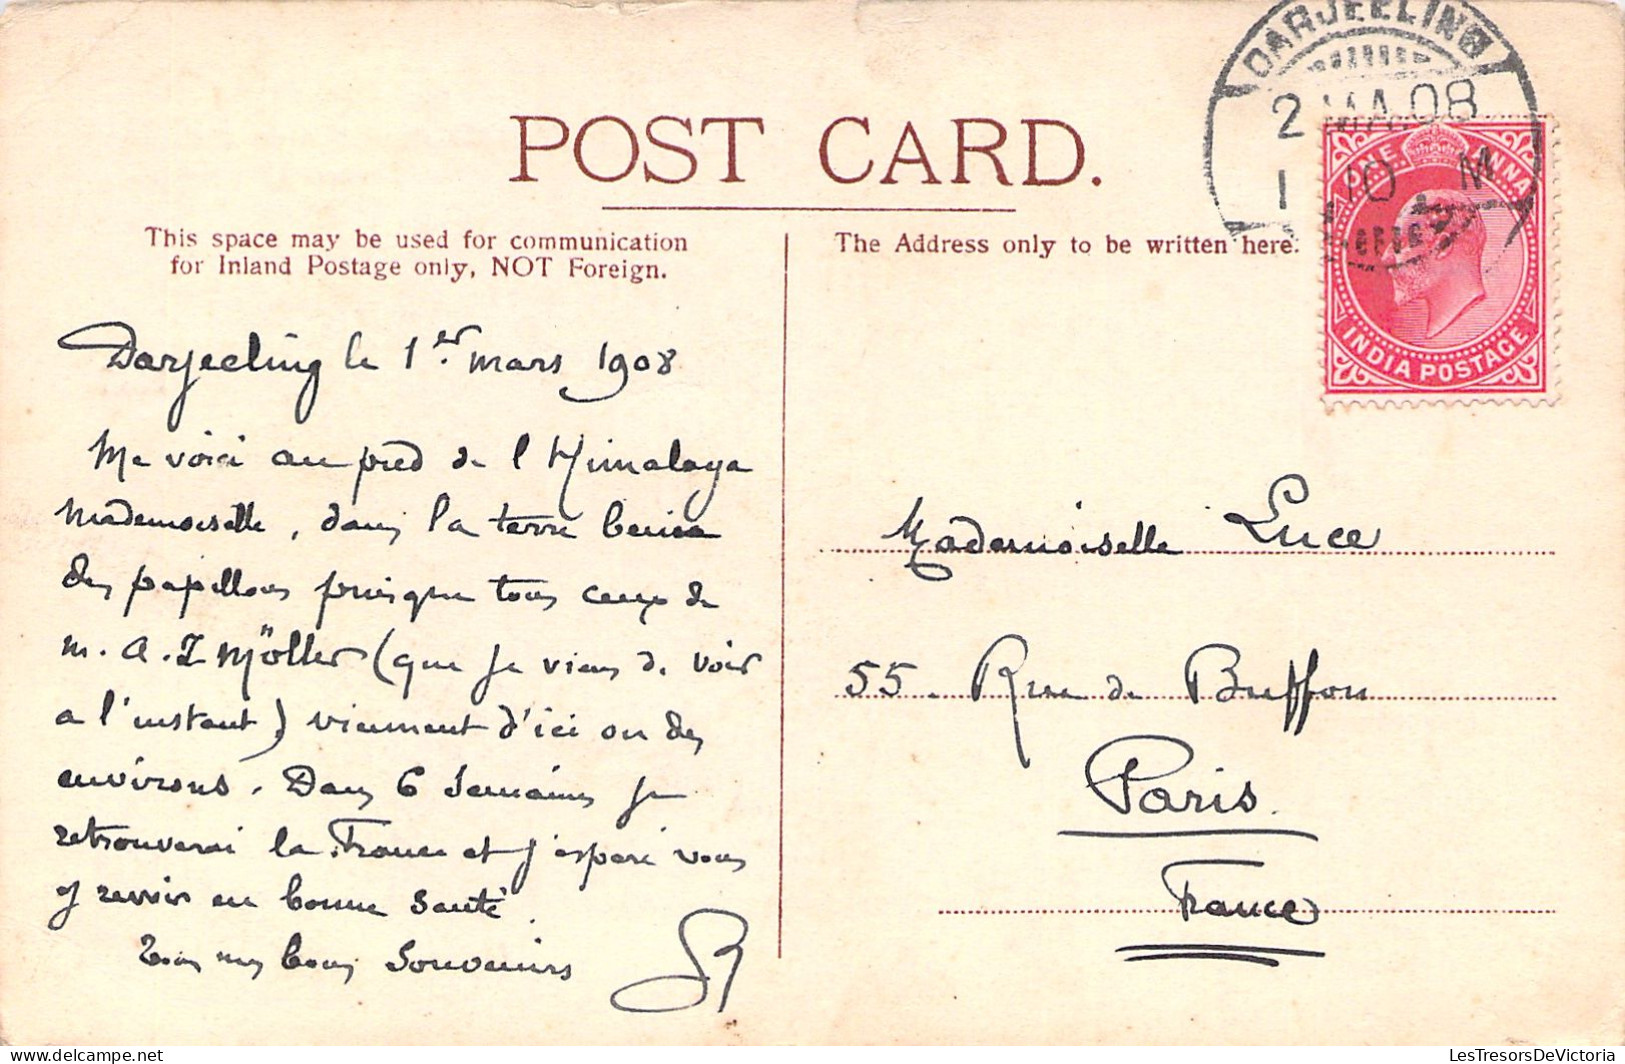 POST CARD.
This space may be used for communication
for Inland Postage only, NOT Foreign.
The Address only to be written here.
DARJEELING
2 MA.08
1 10 M
ONE ANNA
INDIA POSTAGE
Darjeeling le 1er mars 1908
Me voici au pied de l'Himalaya
Mademoiselle, dans la terre benie
des papillons puisque tous ceux de
m. A. Möller (que je viens de voir
a l'instant) viennent d'ici ou des
environs. Dans 6 Semaines je
retrouverai la France et j'espere vous
y revoir en bonne Santé.
Tous mes bons Souvenirs
Mademoiselle Luce
55. Rue de Buffon
Paris.
France
LesTresorsDeVictoria